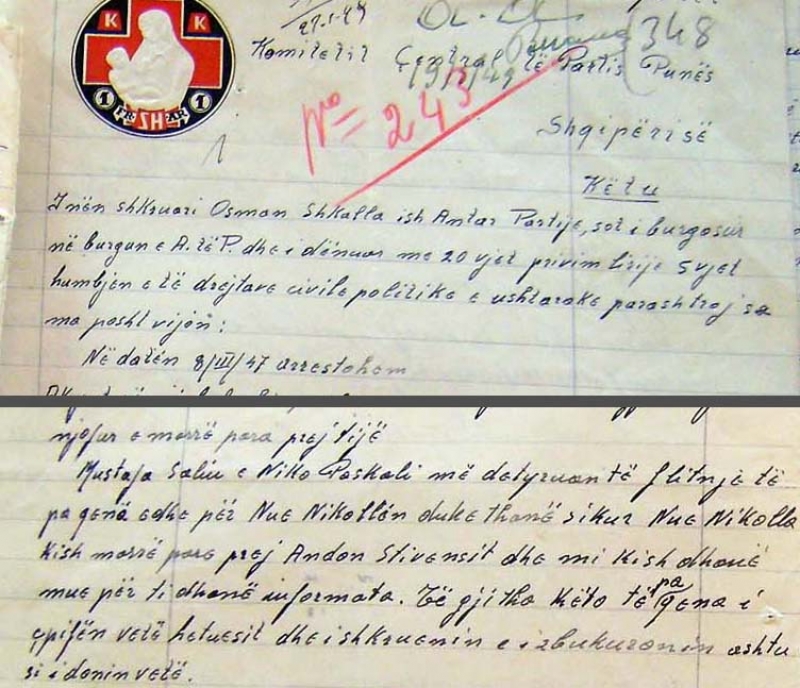 K K
1 FR. SHQ. AR 1
27-1-49
348
Komitetit Çentral të Partis Punës
19/2/49
No = 243
Shqipërisë
Këtu
1
Inën shkruari Osman Shkalla ish Antar Partije, sot i burgosur
në burgun e A. të P. dhe i dënuar me 20 vjet privim lirije 5 vjet
humbjen e të drejtave civile politike e ushtarake parashtroj sa
ma posht vijon:
Në datën 8/III/47 arrestohem
njofur e marrë para prej tijë
Mustafa Saliu e Niko Paskali më detyruan të flitnje të
pa gena edhe për Nue Nikollën duke thanë sikur Nue Nikolla
Kish marrë pare prej Andon Stivensit dhe mi Kish dhanë
mue për ti dhanë informata. Të gjitha Këto të pa gena i
çpifën vetë hetuesit dhe i shkruenin e i zbukuronin ashtu
si i donin vetë.